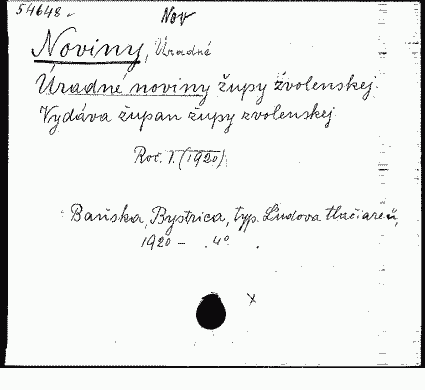 54648.
Nov
Noviny, Úradné
Úradné noviny župy zvolenskej.
Vydáva župan župy zvolenskej
Roč. 1. (1920)
Baňska, Bystrica, typ. Ľudova tlačiareň,
1920 – 4°.
x